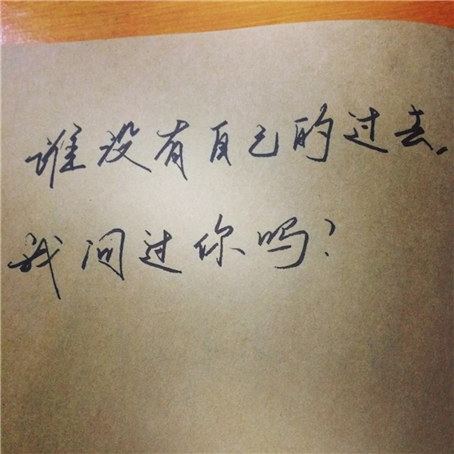 谁没有自己的过去,
我问过你吗?